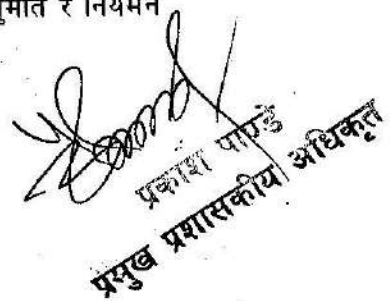 र नियमन
प्रकाश पाण्डे
प्रमुख प्रशासकीय अधिकृत